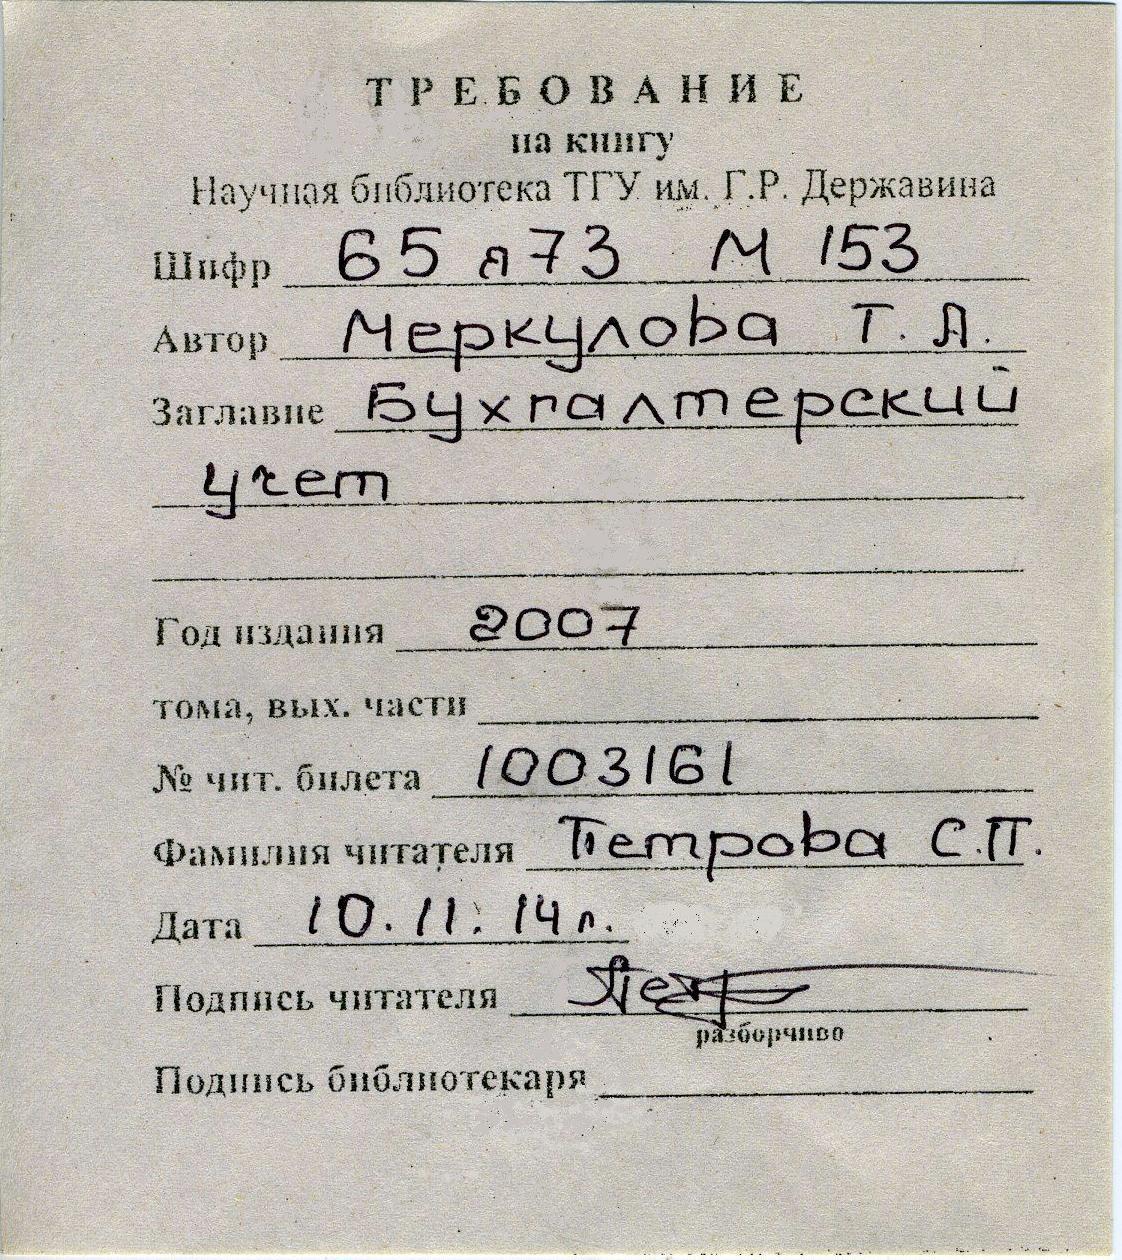 ТРЕБОВАНИЕ
на книгу
Научная библиотека ТГУ им. Г.Р. Державина
Шифр 65 я73 М 153
Автор Меркулова Т. А.
Заглавие Бухгалтерский
учет
Год издания 2007
тома, вых. части
№ чит. билета 1003161
Фамилия читателя Петрова С.П.
Дата 10.11.14 г.
Подпись читателя
разборчиво
Подпись библиотекаря